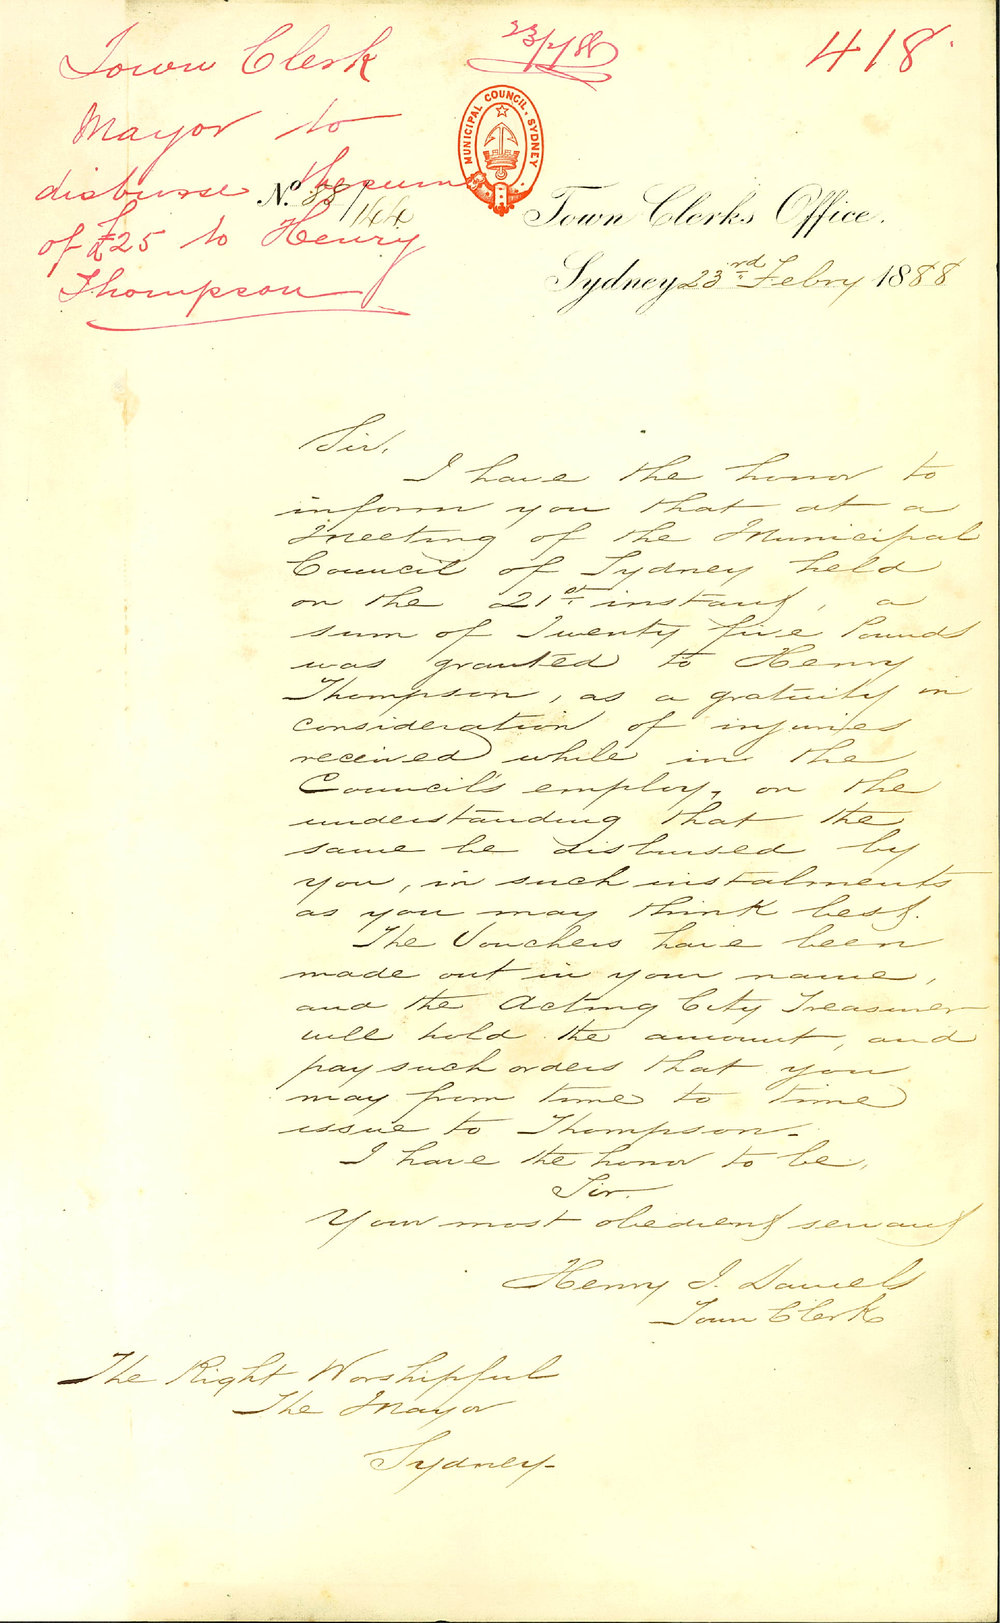 Town Clerk
Mayor to
disburse the sum
of £25 to Henry
Thompson
23/2/88
418
MUNICIPAL COUNCIL, SYDNEY
No. 88/144
Town Clerks Office.
Sydney 23rd Febry 1888
Sir,
I have the honor to
inform you that at a
Meeting of the Municipal
Council of Sydney held
on the 21st instant, a
sum of Twenty five Pounds
was granted to Henry
Thompson, as a gratuity in
consideration of injuries
received while in the
Council's employ, on the
understanding that the
same be disbursed by
you, in such instalments
as you may think best.
The Vouchers have been
made out in your name,
and the Acting City Treasurer
will hold the amount, and
pay such orders that you
may from time to time
issue to Thompson.
I have the honor to be,
Sir.
Your most obedient servant
Henry J. Daniels
Town Clerk
The Right Worshipful
The Mayor
Sydney-